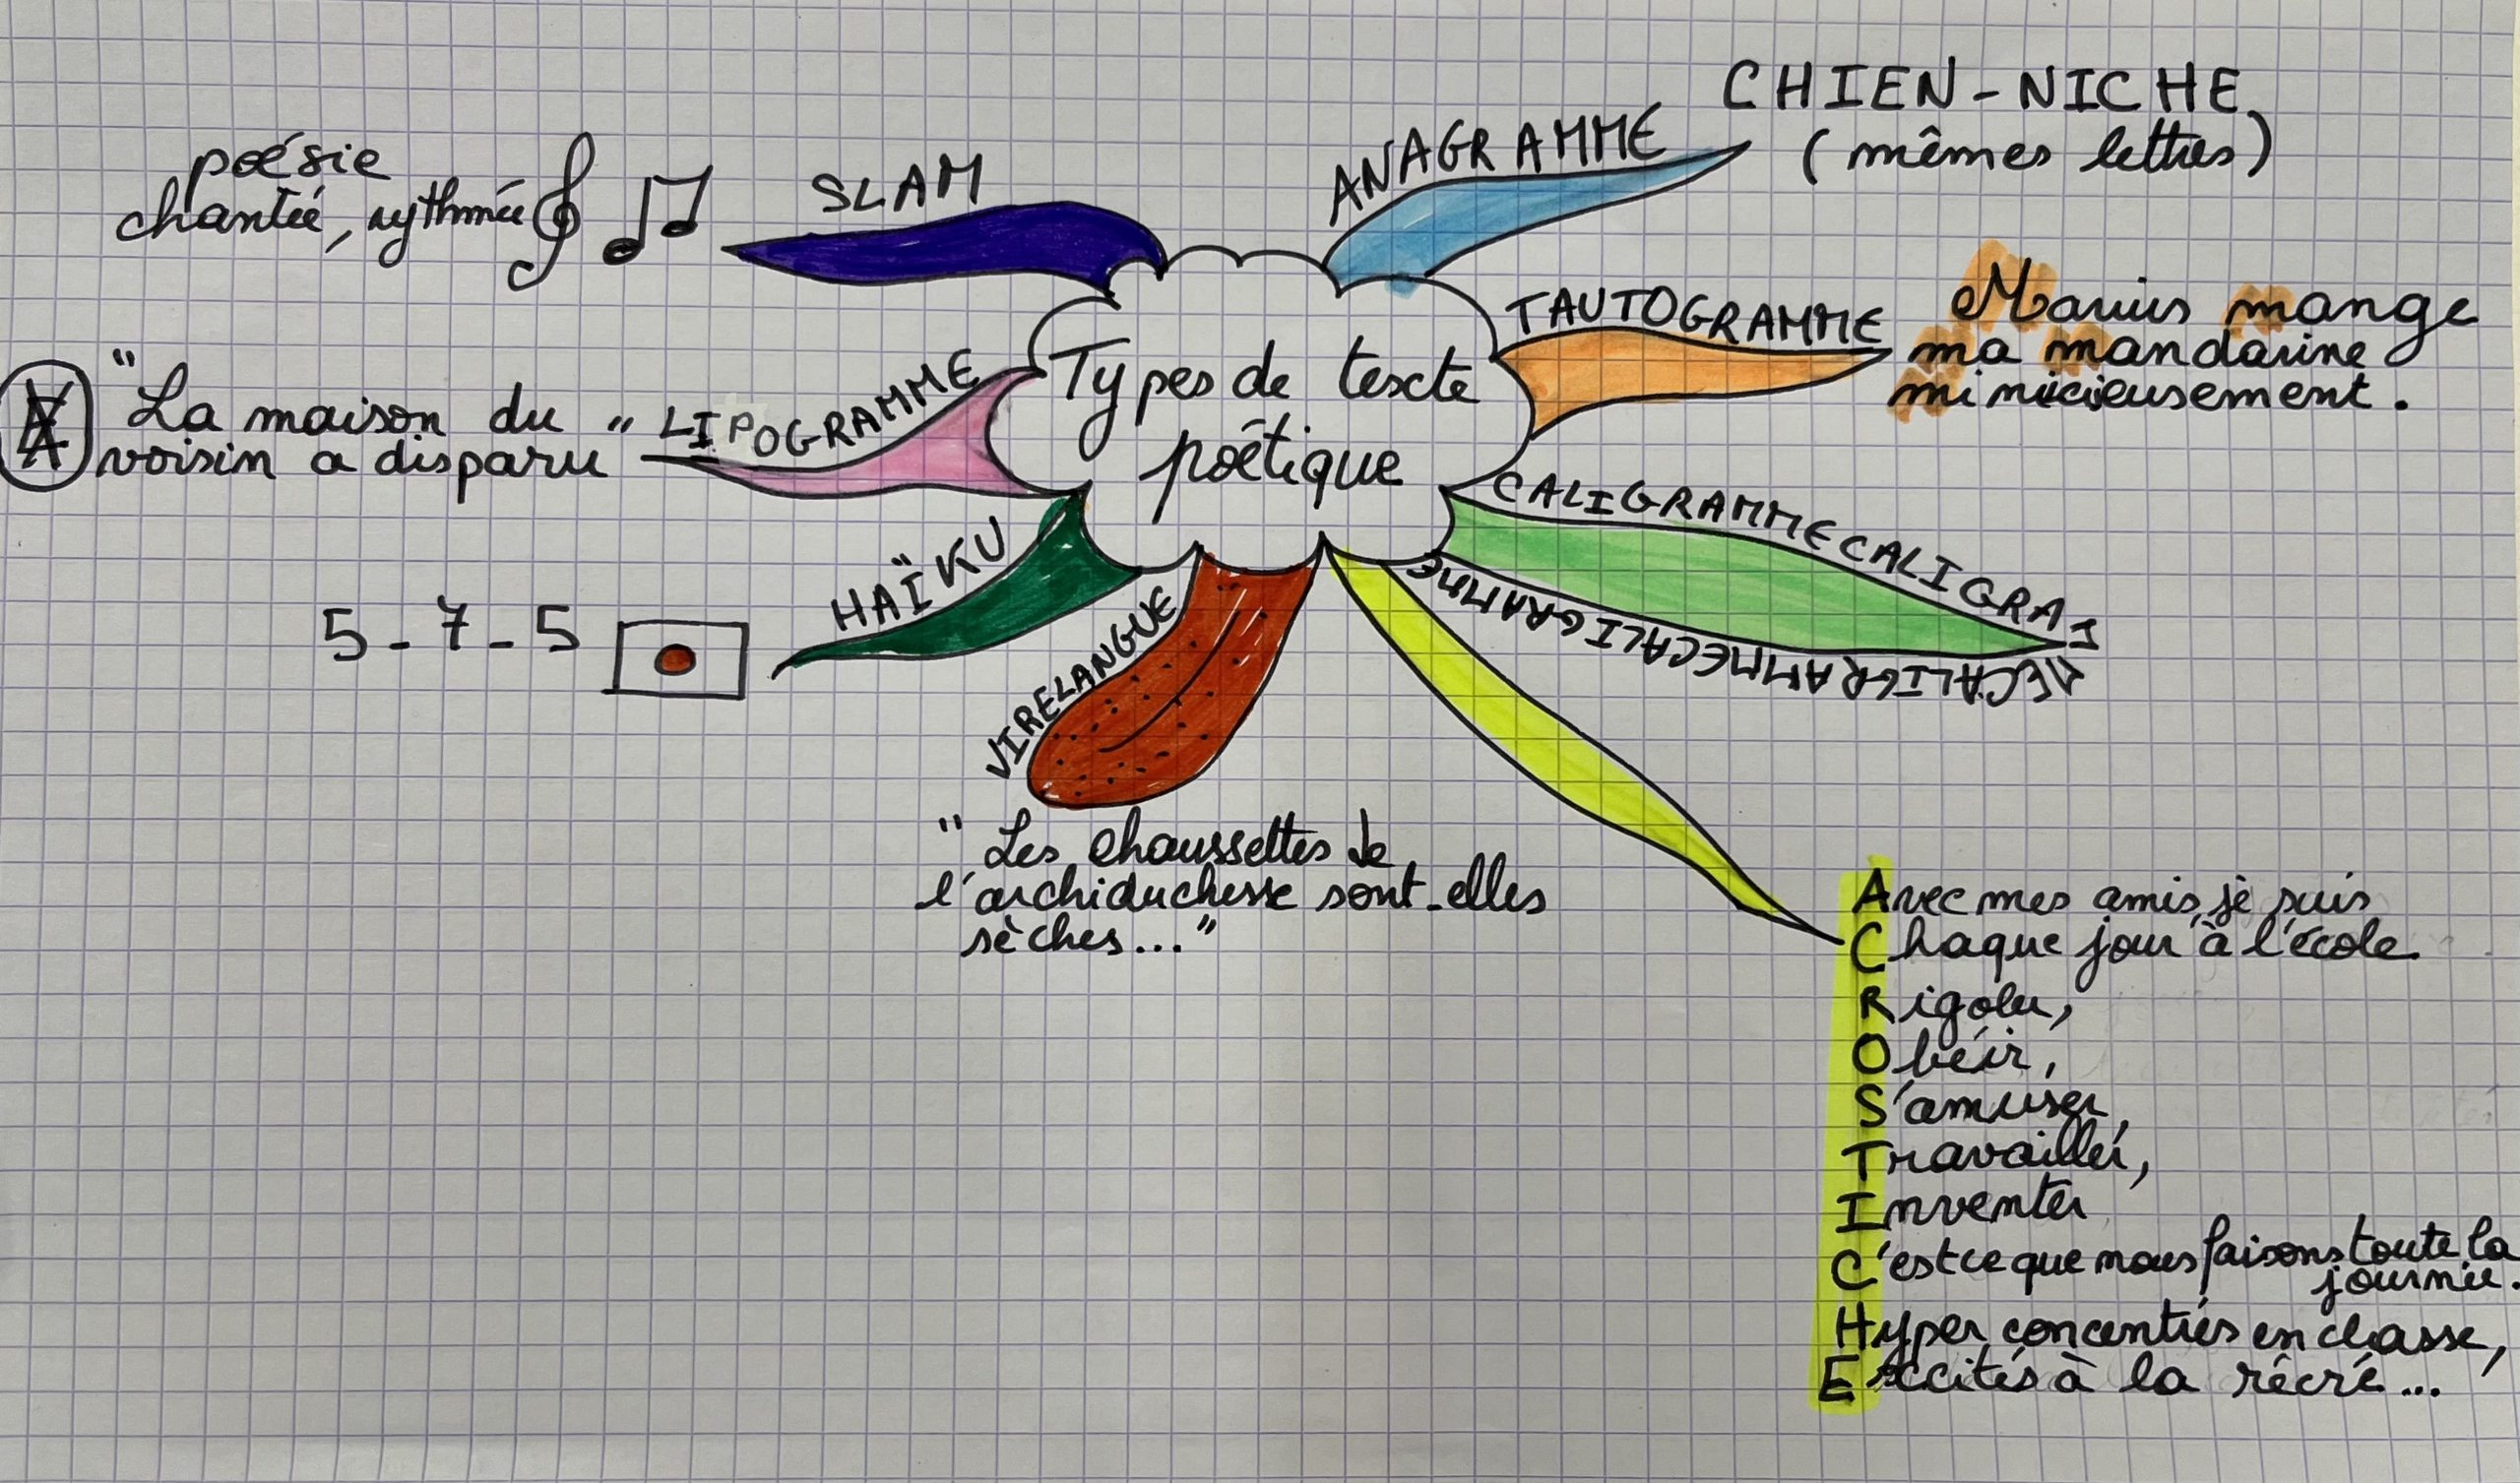 Types de texte
poétique
ANAGRAMME
CHIEN - NICHE
(mêmes lettres)
TAUTOGRAMME
Marius mange
ma mandarine
CALIGRAMMECALIGRA
MECALIGRAMMECALIGRAMME
Avec mes amis, je suis
Chaque jour à l'école
Rigoler,
Obéir,
S'amuser,
Travailler,
Inventer
C'est ce que nous faisons toute la
journée.
Hyper concentrés en classe,
Excités à la récré...
VIRELANGUE
" Les chaussettes de
l'archiduchesse sont-elles
sèches..."
HAÏKU
5 - 7 - 5
LIPOGRAMME
"La maison du
voisin a disparu"
SLAM
poésie
chantée, rythmée